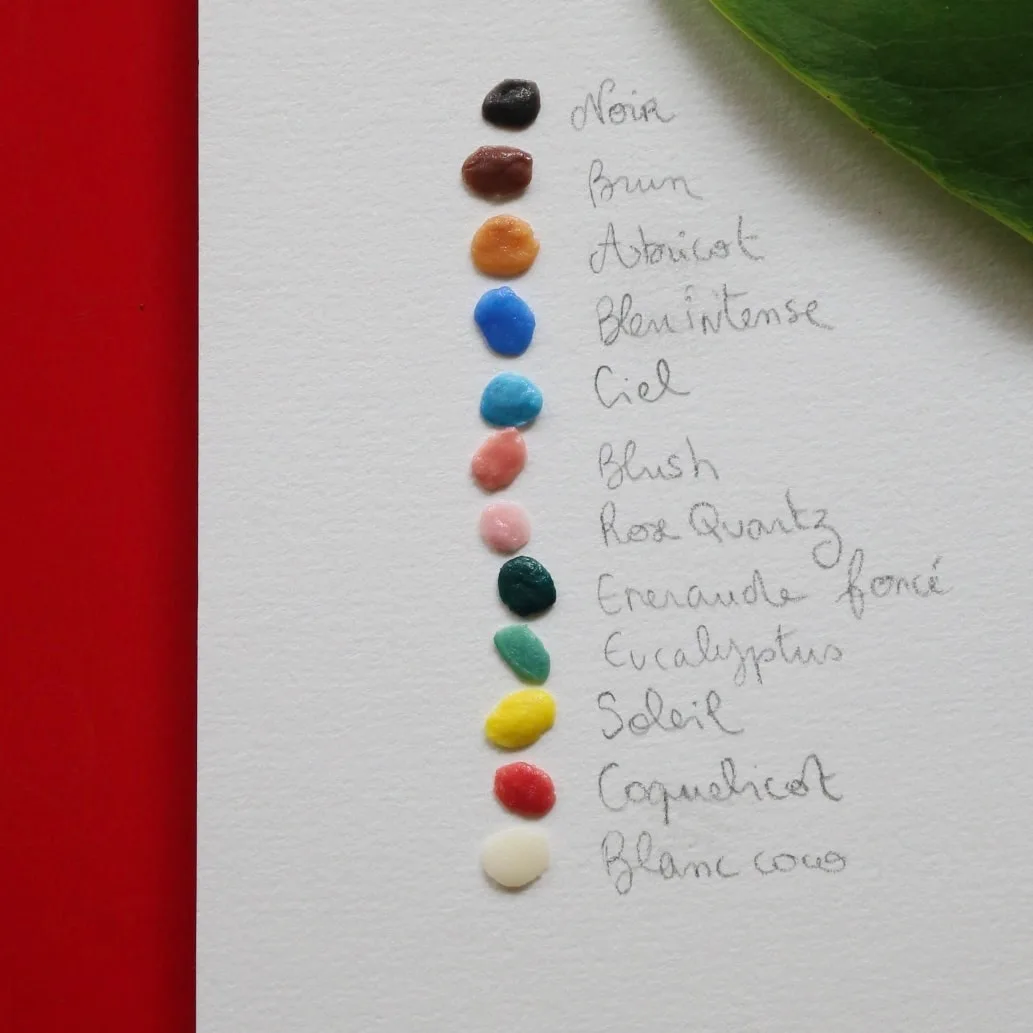 Noir
Brun
Abricot
Bleu intense
Ciel
Blush
Rose Quartz
Emeraude foncé
Eucalyptus
Soleil
Coquelicot
Blanc coco